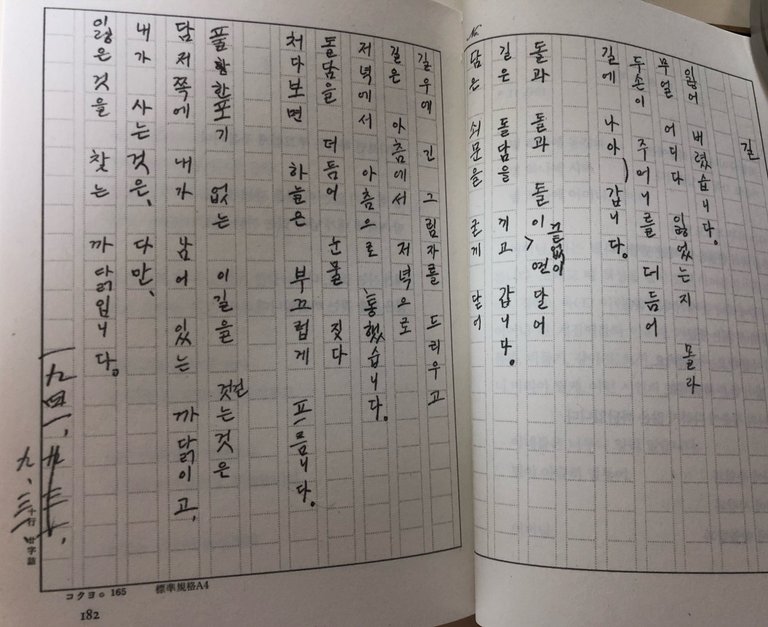 No.
길
잃어 버렸습니다.
무얼 어디다 잃었는지 몰라
두손이 주머니를 더듬어
길에 나아갑니다.
돌과 돌과 돌이 끝없이 연달어
길은 돌담을 끼고 갑니다.
담은 쇠문을 굳게 닫어
길우에 긴 그림자를 드리우고
길은 아츰에서 저녁으로
저녁에서 아츰으로 통했습니다.
돌담을 더듬어 눈물 짓다
처다보면 하늘은 부끄럽게 프름니다.
풀 한포기 없는 이길을 걷는것은
담저쪽에 내가 남어 있는 까닭이고,
내가 사는것은, 다만,
잃은것을 찾는 까닭입니다.
一九四一、九、三一、
十行
コクヨ 165 標準規格A4
182